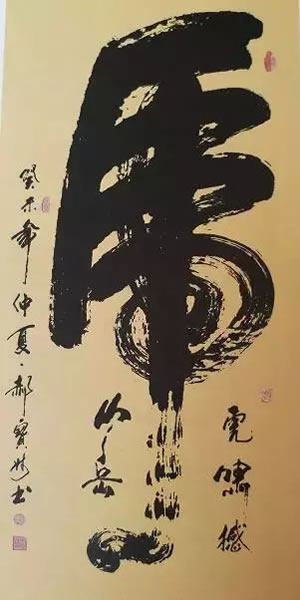 虎
虎嘯撼
山岳
癸未年仲夏·郝寶书